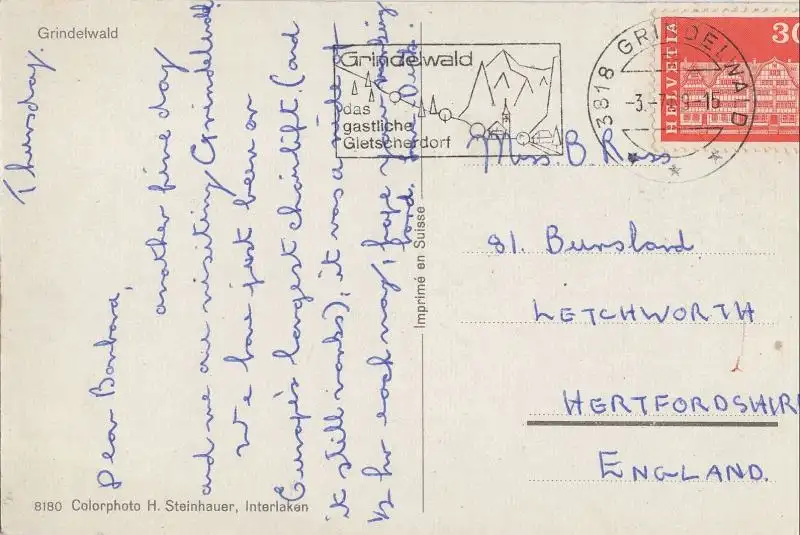 Grindelwald
Thursday.
Dear Barbara,
another fine day
and we are visiting Grindelwald
We have just been on
Europe's largest chairlift. (and
it still works), it was a ride of
1/2 hr each way, I hope your working
hard.
Imprimé en Suisse
8180 Colorphoto H. Steinhauer, Interlaken
Grindelwald
das
gastliche
Gletscherdorf
3818 GRINDELWALD
HELVETIA
30
Miss B. Ross
81. Bursland
LETCHWORTH
HERTFORDSHIRE
ENGLAND.